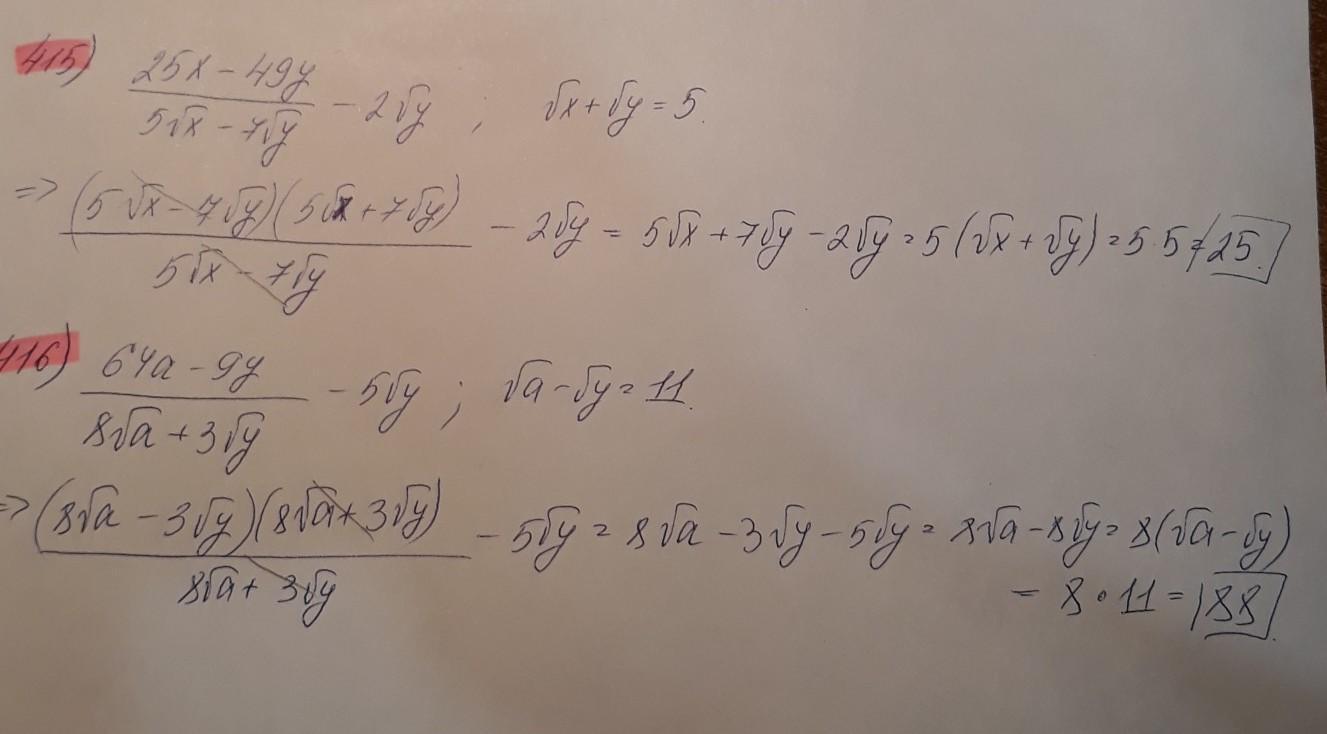 415) (25x - 49y)/(5√x - 7√y) - 2√y ; √x + √y = 5.
=> (5√x - 7√y)(5√x + 7√y)/(5√x - 7√y) - 2√y = 5√x + 7√y - 2√y = 5(√x + √y) = 5·5 = 25.
416) (64a - 9y)/(8√a + 3√y) - 5√y ; √a - √y = 11.
=> (8√a - 3√y)(8√a + 3√y)/(8√a + 3√y) - 5√y = 8√a - 3√y - 5√y = 8√a - 8√y = 8(√a - √y)
= 8 · 11 = 88.